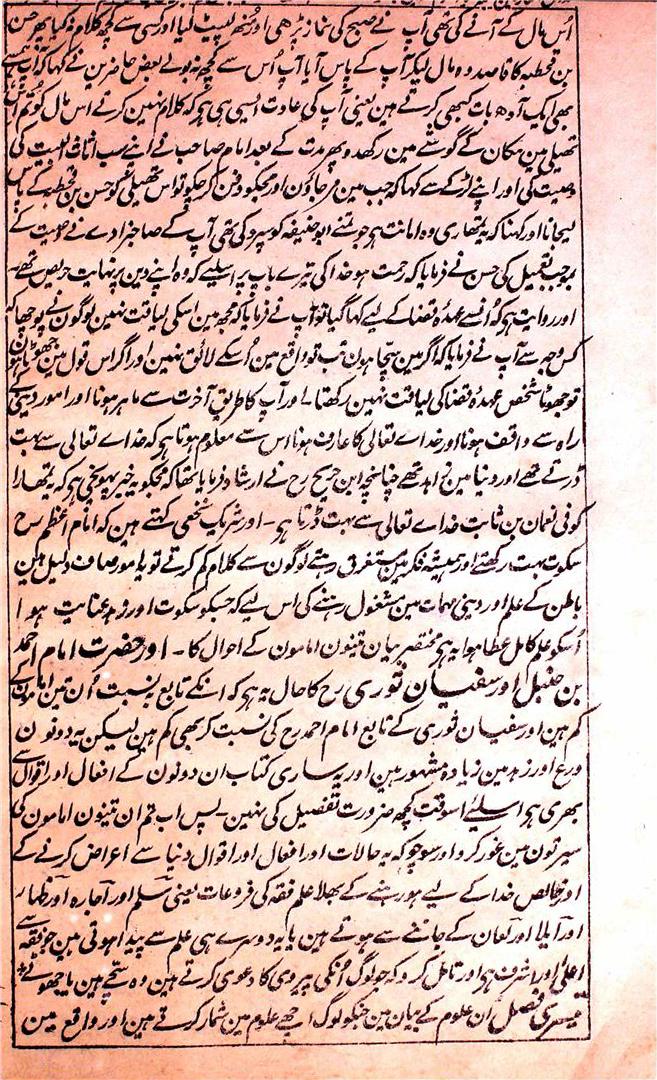 اُس مال کے آنے کی تھی آپ نے صبح کی نماز پڑھی اور مُنھ لپیٹ لیا اور کسی سے کچھ کلام نہ کیا پھر حسن
بن قحطبہ کا قاصد وہ مال لیکر آپ کے پاس آیا آپ اُس سے کچھ نہ بولے بعض حاضرین نے کہا کہ آپ ہم سے
بھی ایک آدھ بات کبھی کرتے ہین یعنی آپ کی عادت ایسی ہی ہے کہ کلام نہین کرتے اس مال کو تم اس
تھیلی مین مکان کے گوشے مین رکھدو پھر مدت کے بعد امام صاحب نے اپنے سب اثاث البیت کی
وصیت کی اور اپنے لڑکے سے کہا کہ جب مین مر جاؤن اور مجکو دفن کر چکو تو اس تھیلی کو حسن بن قحطبہ کے پاس
لیجانا اور کہنا کہ یہ تمھاری وہ امانت ہے جو تمنے ابو حنیفہ کو سپرد کی تھی آپ کے صاحبزادے نے وصیت کے
بموجب تعمیل کی حسن نے فرمایا کہ رحمت ہو خدا کی تیرے باپ پر اسلیے کہ وہ اپنے دین پر نہایت حریص تھے۔
اور روایت ہے کہ اُنسے عہدۂ قضا کے لیے کہا گیا تو آپ نے فرمایا کہ مجھ مین اسکی لیاقت نہین لوگون نے پوچھا کہ
کس وجہ سے آپ نے فرمایا کہ اگر مین سچا ہون تب تو واقع مین اُسکے لائق نہین اور اگر اس قول مین جھوٹا ہون
تو جھوٹا شخص عہدۂ قضا کی لیاقت نہین رکھتا اور آپ کا طریق آخرت سے ماہر ہونا اور امور دینی کی
راہ سے واقف ہونا اور خداے تعالی کا عارف ہونا اس سے معلوم ہوتا ہے کہ خداے تعالی سے بہت
ڈرتے تھے اور دنیا مین زاہد تھے چنانچہ ابن جریج رح نے ارشاد فرمایا تھا کہ مجکو یہ خبر پہونچی ہے کہ تمھارا
کوفی نعمان بن ثابت خداے تعالی سے بہت ڈرتا ہے۔ اور شریک نخعی کہتے ہین کہ امام اعظم رح
سکوت بہت رکھتے اور ہمیشہ فکر مین مستغرق رہتے لوگون سے کلام کم کرتے تو یہ امور صاف دلیل ہین
باطن کے علم اور دینی مہمات مین مشغول رہنے کی اس لیے کہ جسکو سکوت اور زہد عنایت ہوا
اُسکو علم کامل عطا ہوا یہ ہے مختصر بیان تینون امامون کے احوال کا۔ اور حضرت امام احمد
بن حنبل اور سفیان ثوری رح کا حال یہ ہے کہ انکے تابع بہ نسبت اُن تین امامون کے
کم ہین اور سفیان ثوری کے تابع امام احمد رح کی نسبت کر بھی کم ہین لیکن یہ دونون
ورع اور زہد مین زیادہ مشہور ہین اور یہ ساری کتاب ان دونون کے افعال اور اقوال سے
بھری ہے اسلیے اسوقت کچھ ضرورت تفصیل کی نہین۔ پس اب تم ان تینون امامون کی
سیرتون مین غور کرو اور سوچو کہ یہ حالات اور افعال اور اقوال دنیا سے اعراض کرنے کے
اور خالص خدا کے لیے ہو رہنے کے بھلا علم فقہ کی فروعات یعنی سلم اور اجارہ اور ظہار
اور ایلا اور لعان کے جاننے سے ہوتے ہین یا یہ دوسرے ہی علم سے پیدا ہوتی ہین جو فقہ سے
اعلی اور اشرف ہے اور تامل کرو کہ جو لوگ اُنکی پیروی کا دعوی کرتے ہین وہ سچے ہین یا جھوٹے
تیسری فصل ان علوم کے بیان مین جنکو لوگ اچھے علوم مین شمار کرتے ہین اور واقع مین